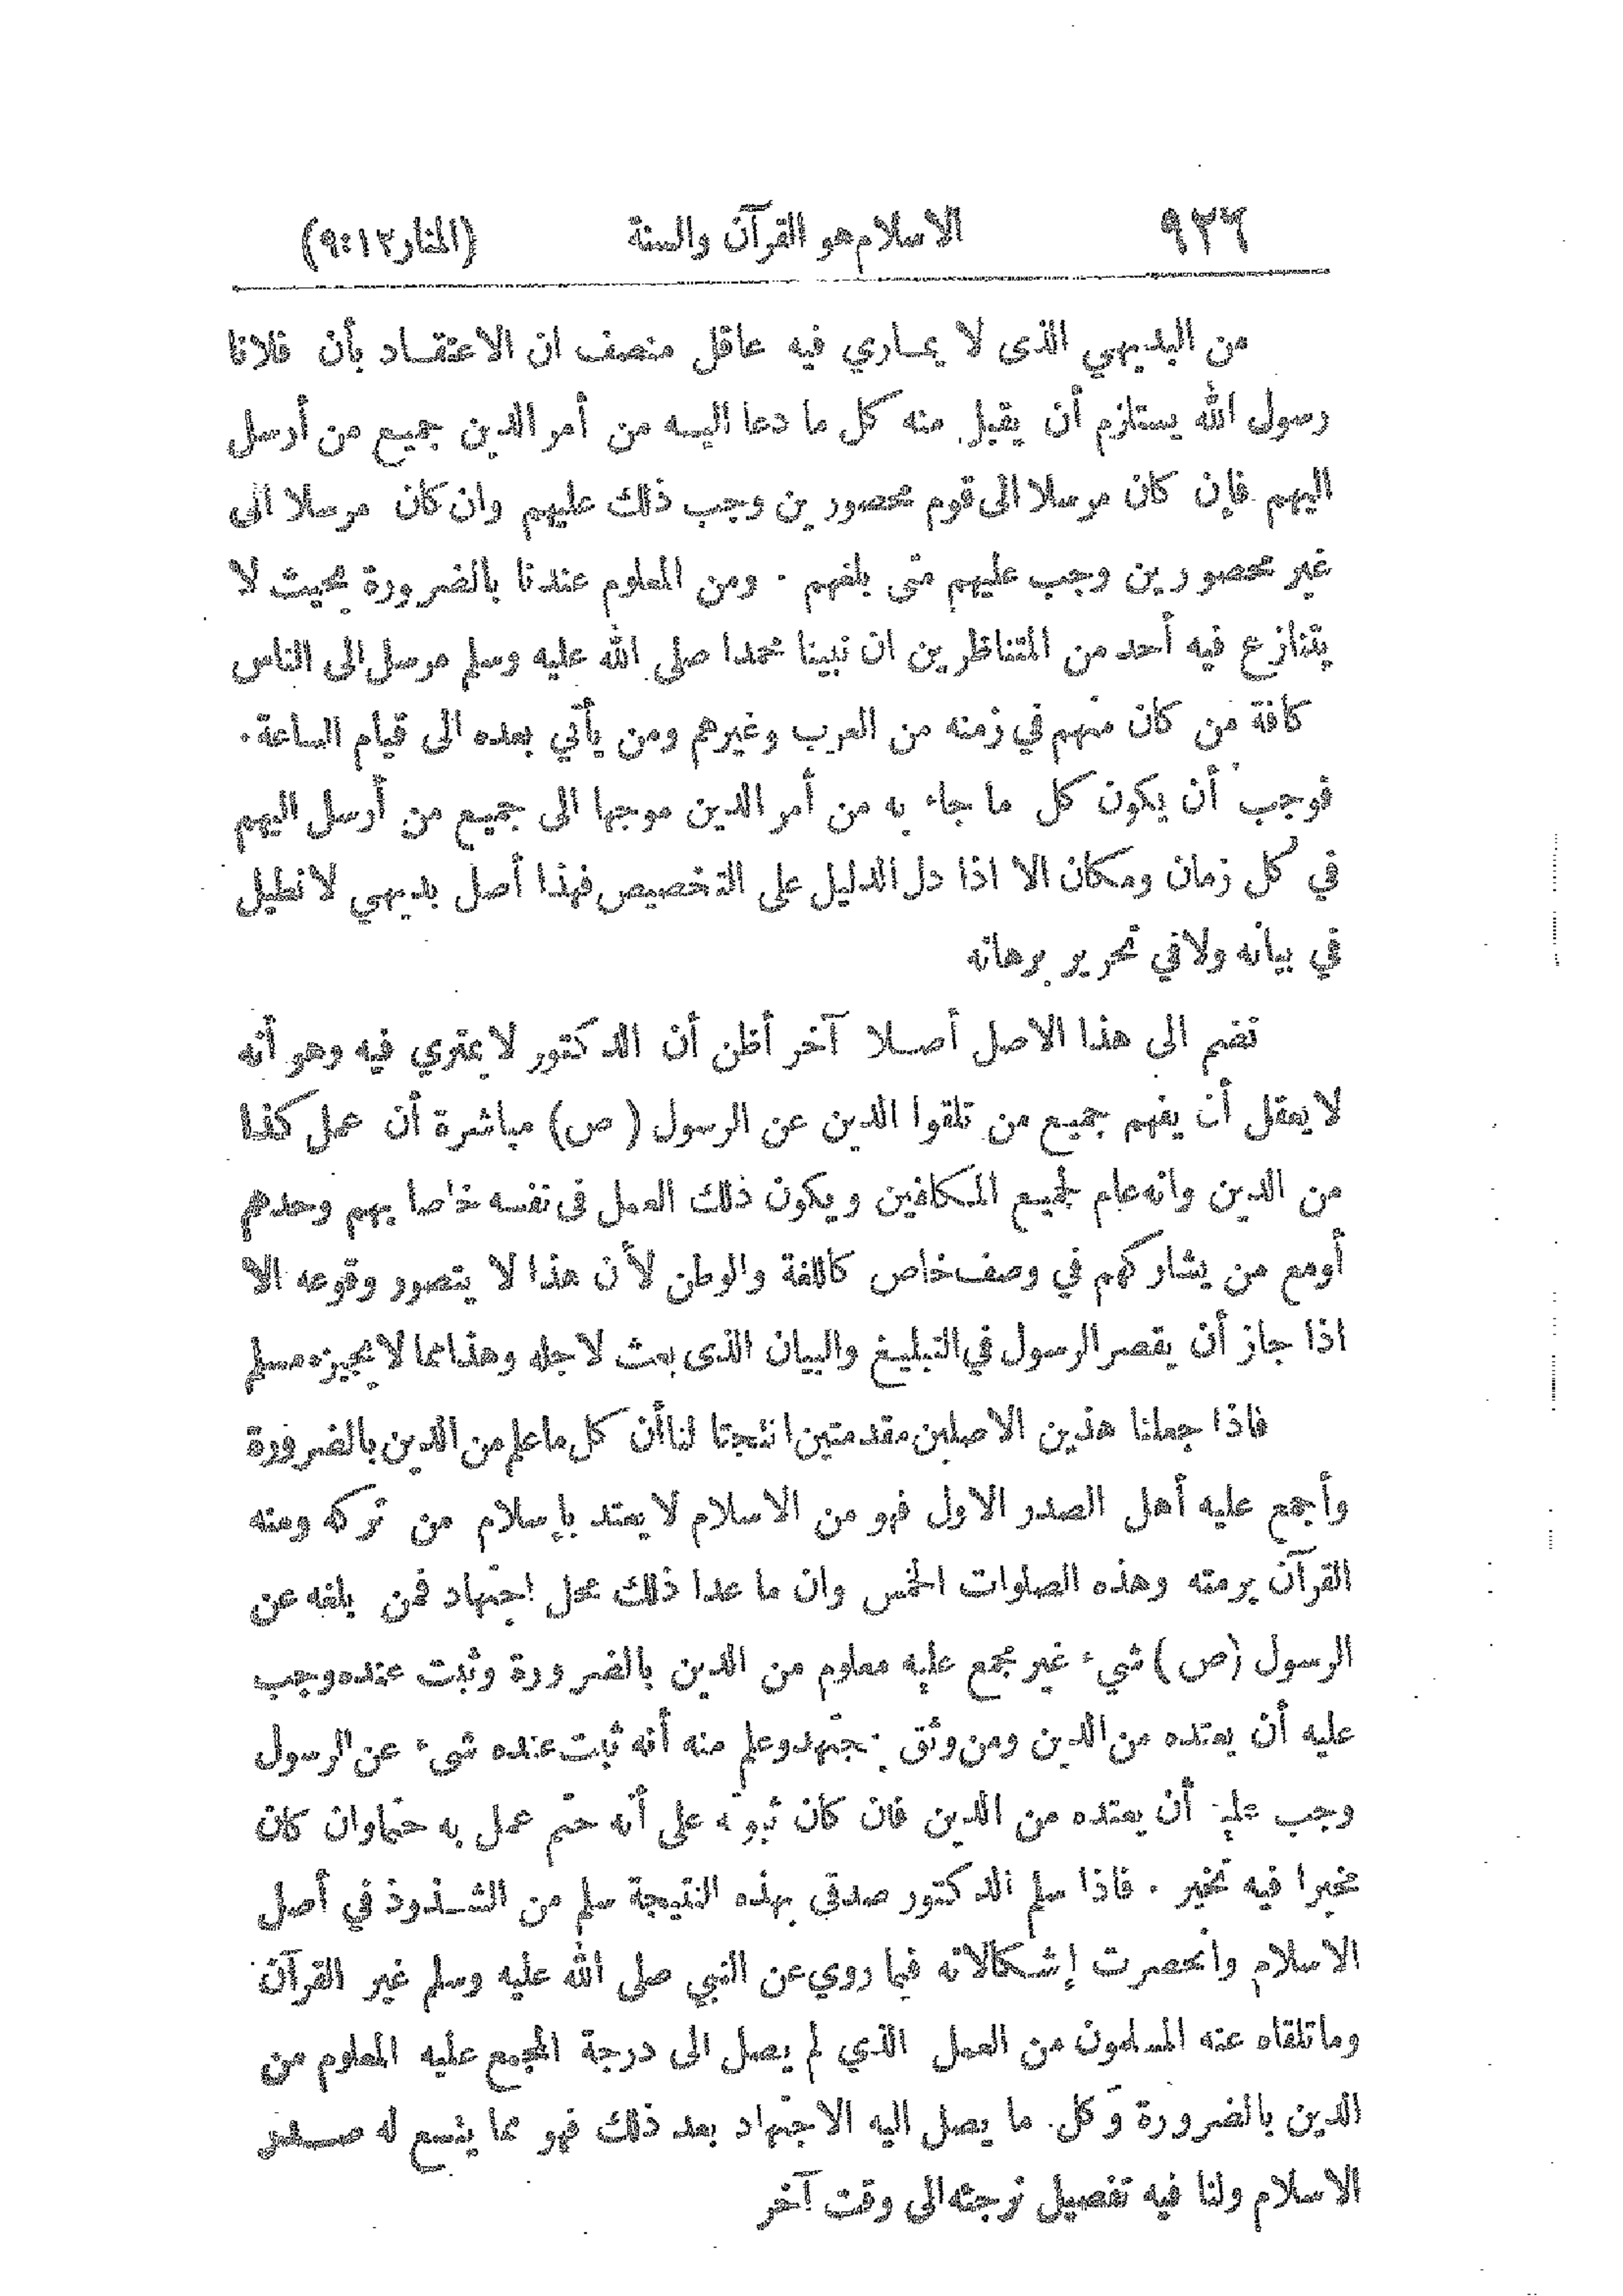 ٩٢٦ الاسلام هو القرآن والسنة (المنار ٩:١٢)
من البديهي الذى لا يمـاري فيه عاقل منصف ان الاعتقـاد بأن فلانا
رسول الله يستلزم أن يقبل منه كل ما دعا اليـه من أمر الدين جميع من أرسل
اليهم فإن كان مرسلا الى قوم محصورين وجب ذلك عليهم وان كان مرسلا الى
غير محصورين وجب عليهم متى بلغهم . ومن المعلوم عندنا بالضرورة بحيث لا
يتنازع فيه أحد من المتناظرين ان نبينا محمدا صلى الله عليه وسلم مرسل الى الناس
كافة من كان منهم في زمنه من العرب وغيرهم ومن يأتي بعده الى قيام الساعة .
فوجب أن يكون كل ما جاء به من أمر الدين موجها الى جميع من أرسل اليهم
في كل زمان ومكان الا اذا دل الدليل على التخصيص فهذا أصل بديهي لا نطيل
في بيانه ولا في تحرير برهانه
نضم الى هذا الاصل أصـلا آخر أظن أن الدكتور لا يمتري فيه وهو أنه
لا يعقل أن يفهم جميع من تلقوا الدين عن الرسول (ص) مباشرة أن عمل كذا
من الدين وانه عام لجميع المكلفين ويكون ذلك العمل فى نفسه خاصا بهم وحدهم
أو مع من يشاركهم في وصف خاص كاللغة والوطن لأن هذا لا يتصور وقوعه الا
اذا جاز أن يقصر الرسول في التبليغ والبيان الذى بعث لاجله وهذا مما لا يجيزه مسلم
فاذا جعلنا هذين الاصلين مقدمتين انتجتا لنا أن كل ما علم من الدين بالضرورة
وأجمع عليه أهل الصدر الاول فهو من الاسلام لا يعتد بإسلام من تركه ومنه
القرآن برمته وهذه الصلوات الخمس وان ما عدا ذلك محل اجتهاد فمن بلغه عن
الرسول (ص) شيء غير مجمع عليه معلوم من الدين بالضرورة وثبت عنده وجب
عليه أن يعتده من الدين ومن وثق بمجتهد وعلم منه أنه ثابت عنده شيء عن الرسول
وجب عليه أن يعتده من الدين فان كان ثبوته على أنه حتم عمل به حتما وان كان
مخيرا فيه تخير . فاذا سلم الدكتور صدقي بهذه النتيجة سلم من الشـذوذ في أصل
الاسلام وانحصرت إشكالاته فيما روي عن النبي صلى الله عليه وسلم غير القرآن
وما تلقاه عنه المسلمون من العمل الذي لم يصل الى درجة المجمع عليه المعلوم من
الدين بالضرورة وكل ما يصل اليه الاجتهاد بعد ذلك فهو مما يتسع له صـدر
الاسلام ولنا فيه تفصيل نرجئه الى وقت آخر